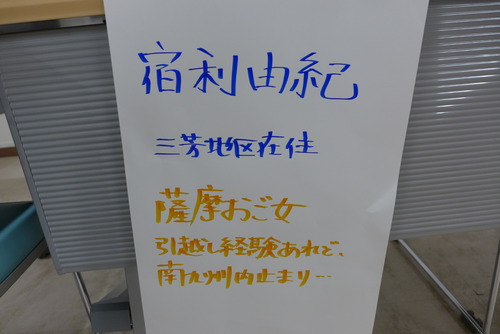 宿利由紀
三芳地区在住
薩摩おご女
引越し経験あれど、
南九州内止まり…